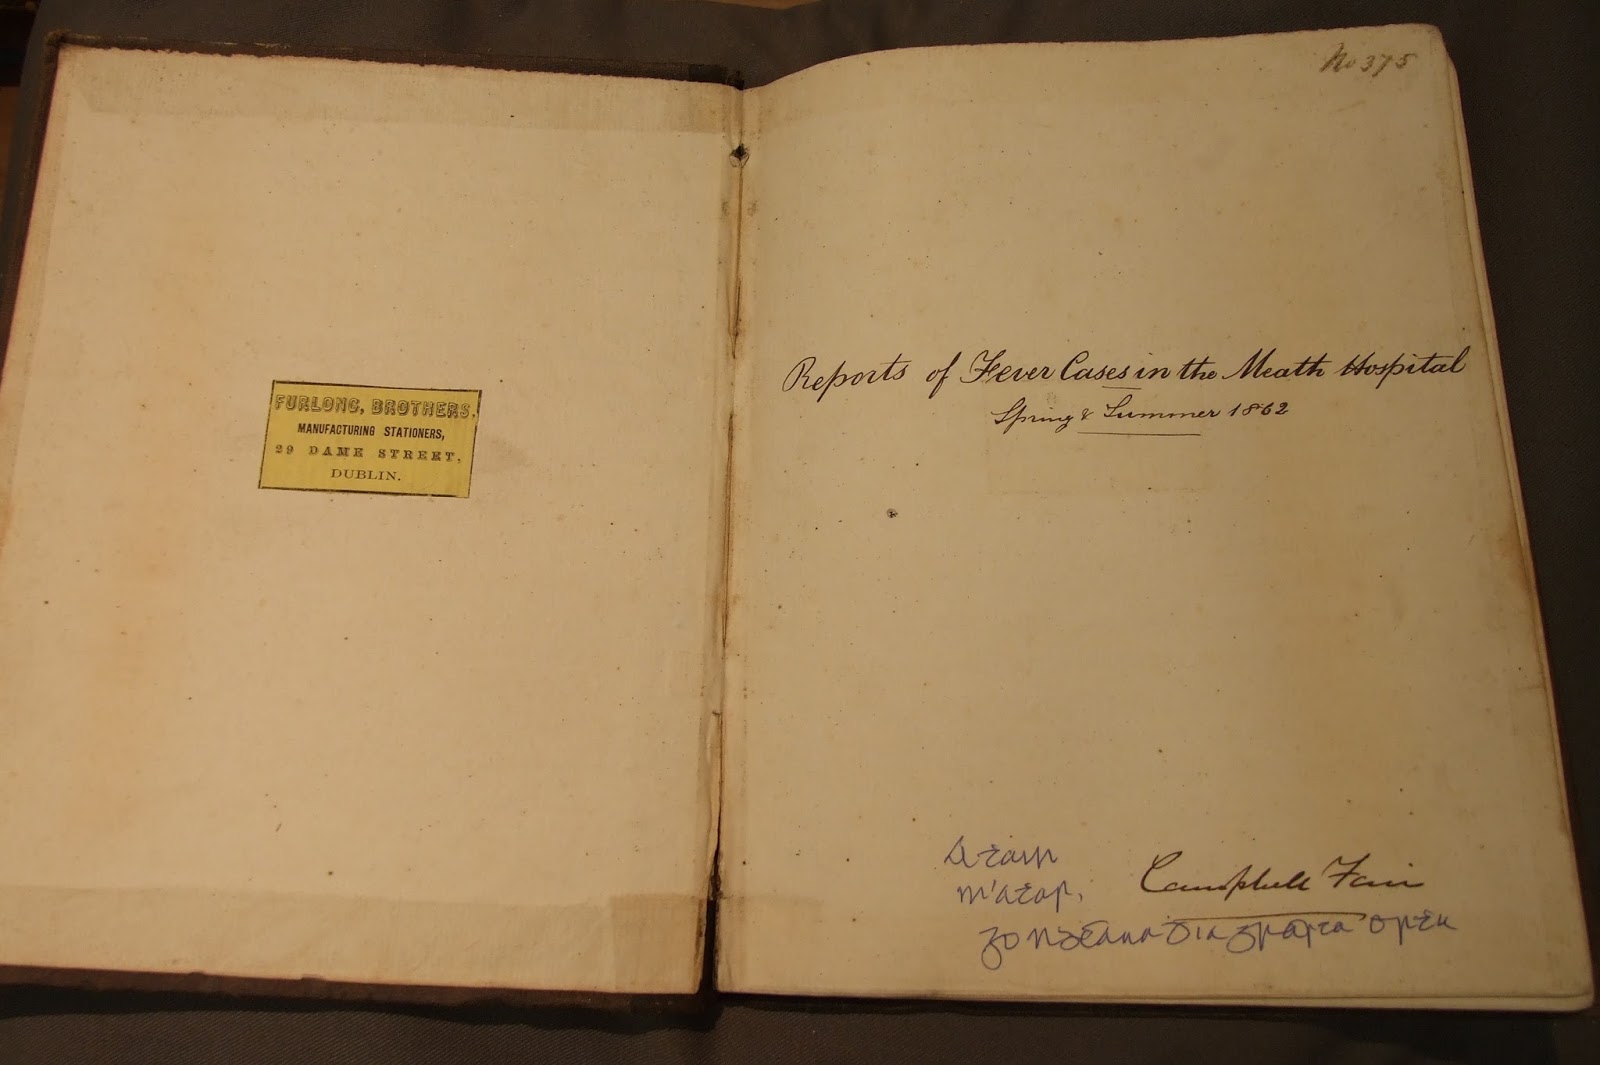 FURLONG, BROTHERS,
MANUFACTURING STATIONERS,
29 DAME STREET,
DUBLIN.
No 375
Reports of Fever Cases in the Meath Hospital
Spring & Summer 1862
Campbell Fair
m'atar,
go nDéana Dia